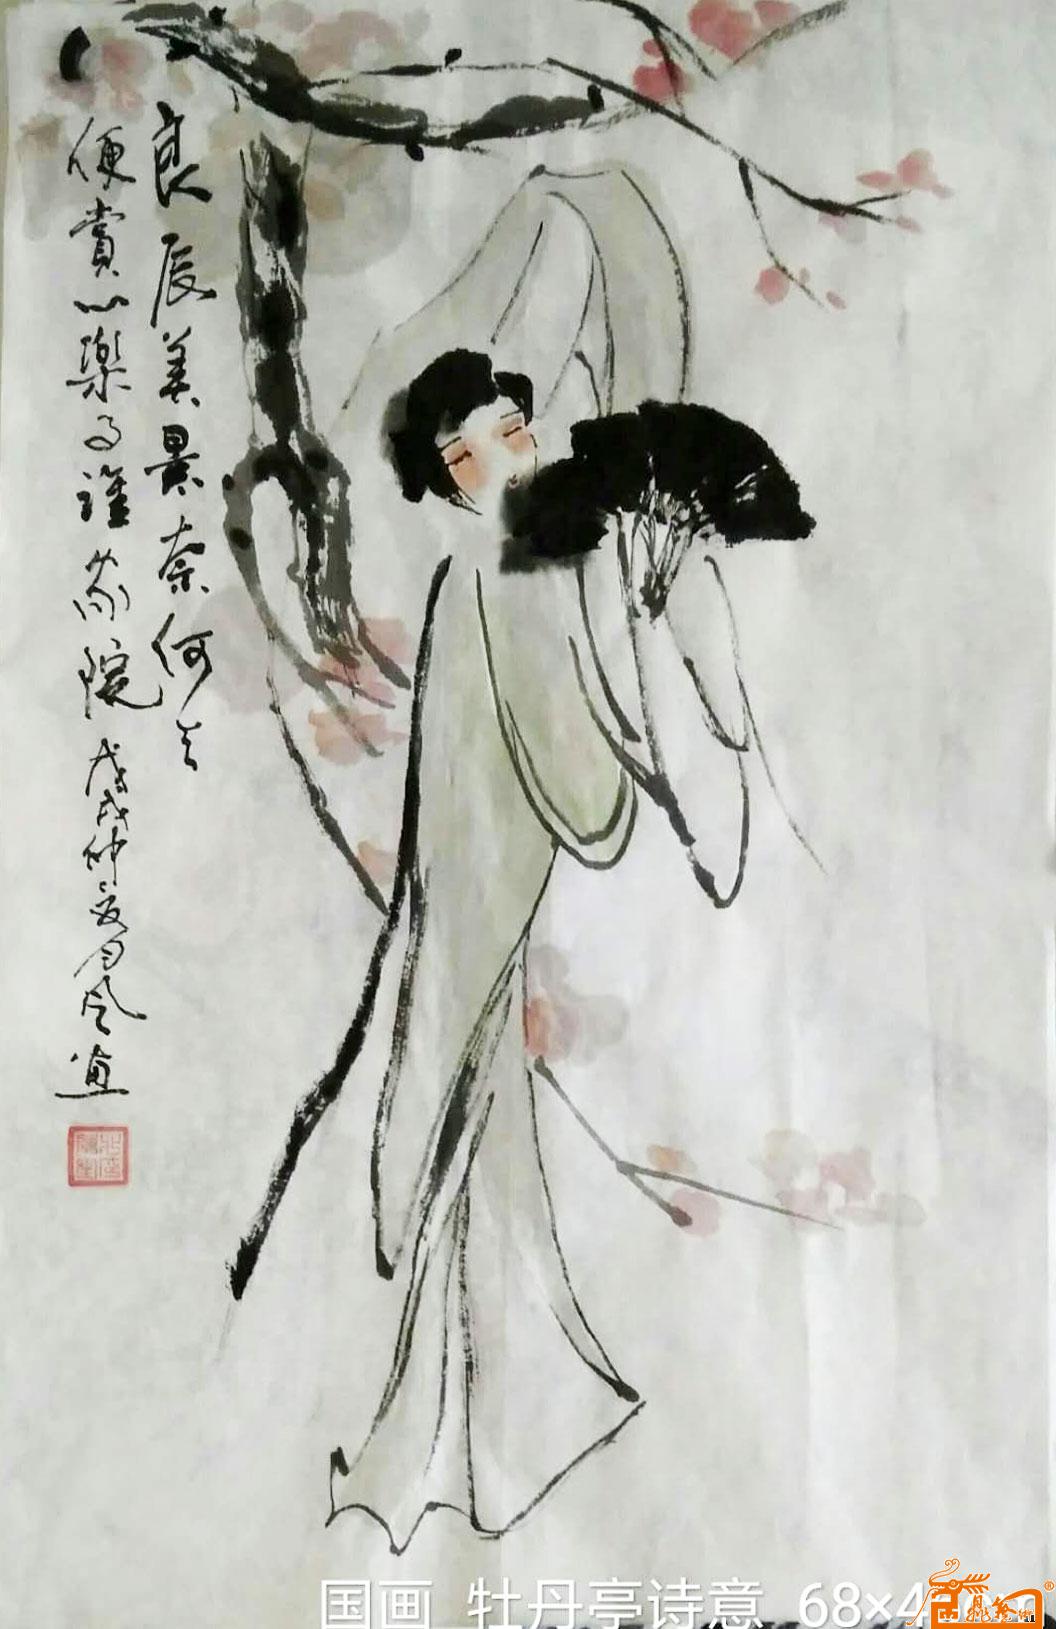 良辰美景奈何天
便赏心樂事誰家院
戊戌仲夏
国画 牡丹亭诗意 68×4